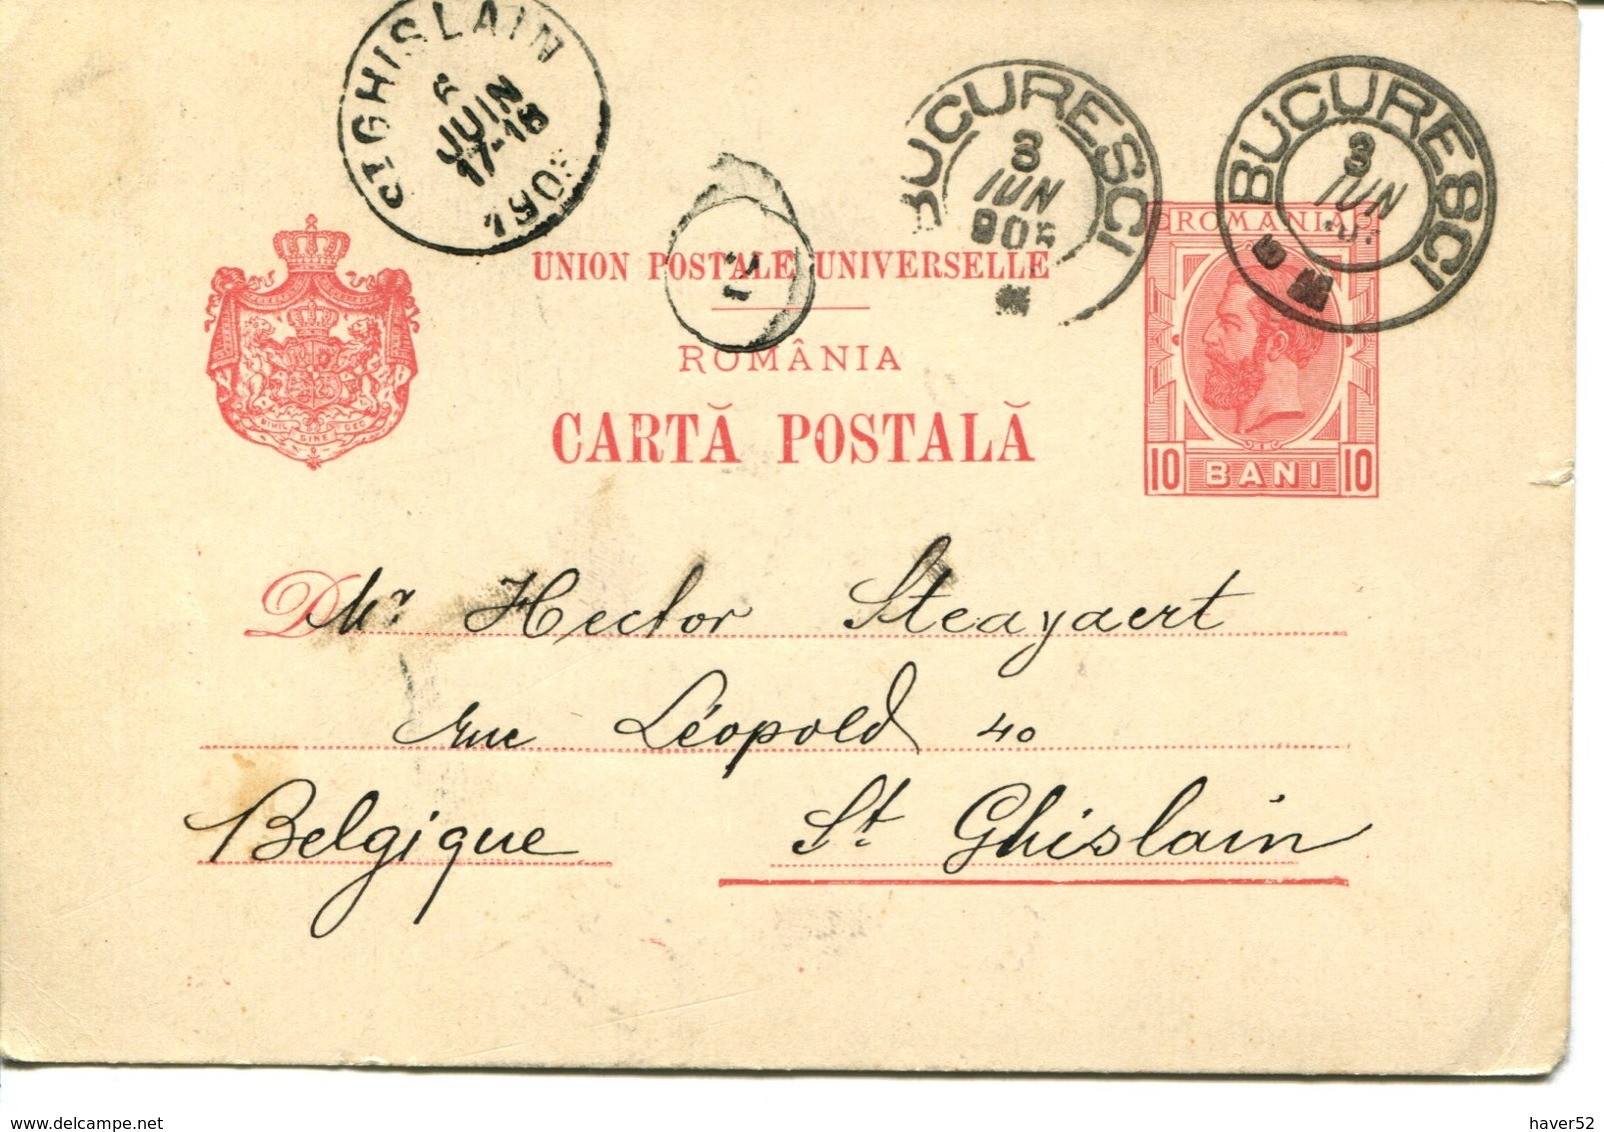 STGHISLAIN
6
JUIN
17-18
1904
BUCURESCI
3
IUN
905
BUCURESCI
3
IUN
ROMANIA
UNION POSTALE UNIVERSELLE
ROMÂNIA
CARTĂ POSTALĂ
NIHIL SINE DEO
10 BANI 10
D Mr Hector Steayaert
rue Léopold 40
Belgique St Ghislain
www.delcampe.net
haver52